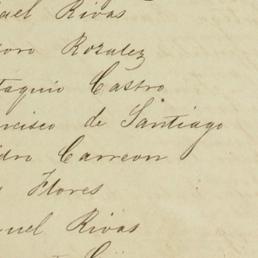 ael Rivas
oro Rozalez
taquio Castro
ncisco de Santiago
idro Carreon
Flores
uel Rivas